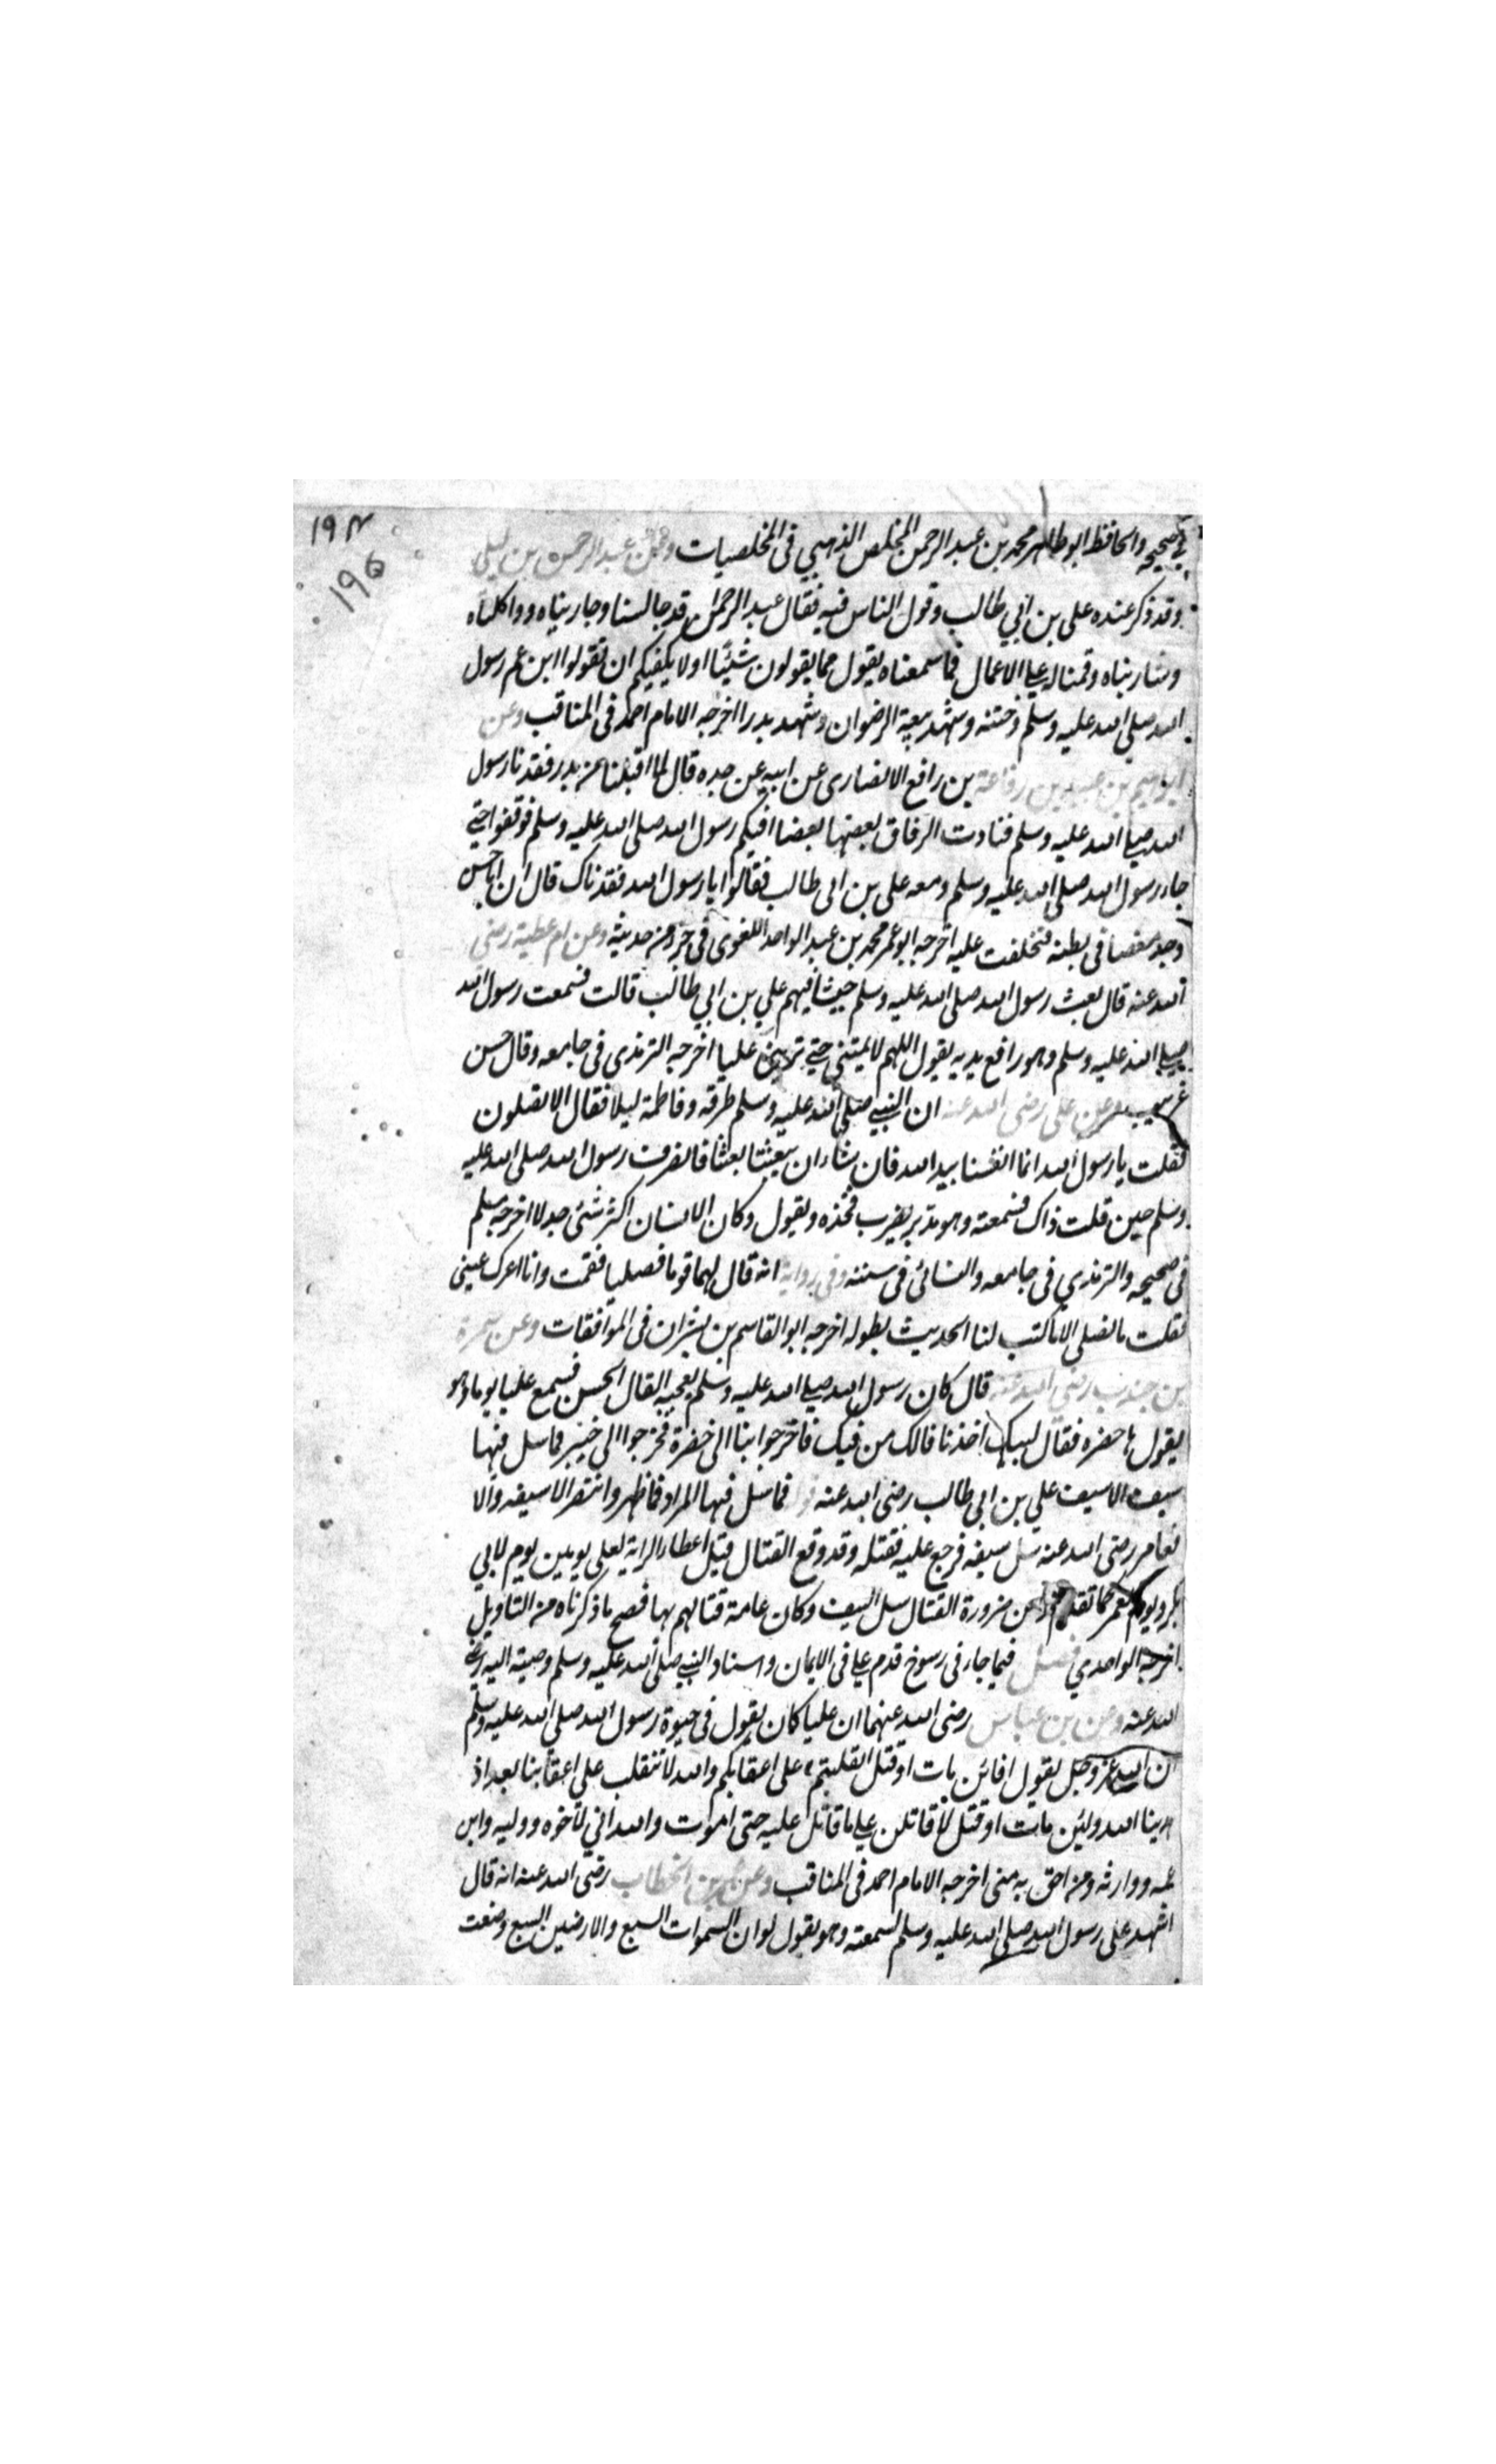 ١٩٤
١٩٥
في صحيحه والحافظ ابو طاهر محمد بن عبد الرحمن المخلص الذهبي فى المخلصيات وعن عبد الرحمن بن ليلى
وقد ذكر عنده على بن ابي طالب وقول الناس فيه فقال عبد الرحمن قد جالسنا وجاريناه وواكلناه
وشاربناه وقمنا له على الاعمال فما سمعناه يقول مما يقولون شيئا اولا يكفيكم ان تقولوا ابن عم رسول
الله صلي الله عليه وسلم وختنه وشهد بيعة الرضوان وشهد بدرا اخرجه الامام احمد فى المناقب وعن
ابراهيم بن عبيد بن رفاعة بن رافع الانصارى عن ابيه عن جده قال لما اقبلنا من بدر فقدنا رسول
الله صلى الله عليه وسلم فنادت الرفاق بعضها بعضا افيكم رسول الله صلى الله عليه وسلم فوقفوا حتى
جاء رسول الله صلى الله عليه وسلم ومعه على بن ابى طالب فقالوا يا رسول الله فقدناك قال ان ابا حسن
وجد مغصا فى بطنه فتخلفت عليه اخرجه ابو عمر محمد بن عبد الواحد اللغوى فى جزو من حديثه وعن ام عطية رضى
الله عنه قال بعث رسول الله صلى الله عليه وسلم جيشا فيهم علي بن ابي طالب قالت فسمعت رسول الله
صلى الله عليه وسلم وهو رافع يديه يقول اللهم لا تمتني حتى تريني عليا اخرجه الترمذى فى جامعه وقال حسن
غريب وعن على رضى الله عنه ان النبي صلى الله عليه وسلم طرقه وفاطمة ليلا فقال الا تصلون
فقلت يا رسول الله انما انفسنا بيد الله فان شاء ان يبعثنا بعثنا فانصرف رسول الله صلى الله عليه
وسلم حين قلت ذاك فسمعته وهو مدبر يضرب فخذه ويقول وكان الانسان اكثر شئ جدلا اخرجه مسلم
فى صحيحه والترمذي فى جامعه والنسائى فى سننه وفى رواية انه قال لهما قوما فصليا فقمت وانا اعرك عينى
فقلت ما نصلى الا ما كتب لنا الحديث بطوله اخرجه ابو القاسم بن بشران فى الموافقات وعن سمرة
بن جندب رضى الله عنه قال كان رسول الله صلى الله عليه وسلم يعجبه الفال الحسن فسمع عليا يوما وهو
يقول ها خضره فقال لبيك اخذنا فالك من فيك فاخرجوا بنا الى خضرة فخرجوا الى خيبر فما سل فيها
سيف الا سيف علي بن ابى طالب رضى الله عنه فما سل فيها المراد فما ظهر وانتصر الا سيفه والا
فعامر رضى الله عنه سل سيفه فرجع عليه فقتله وقد وقع القتال قبل اعطاء الراية لعلى يومين يوم لابي
بكر ويوم لعمر كما تقدم ومن ضرورة القتال سل السيف وكان عامة قتالهم بها فصح ما ذكرناه من التاويل
اخرجه الواحدي فصل فيما جاء فى رسوخ قدم على فى الايمان واسناد النبي صلى الله عليه وسلم وصيته اليه رضى
الله عنه وعن بن عباس رضى الله عنهما ان عليا كان يقول فى حيوة رسول الله صلى الله عليه وسلم
ان الله عز وجل يقول افائن مات او قتل انقلبتم على اعقابكم والله لا ننقلب على اعقابنا بعد اذ
هدينا الله ولئن مات او قتل لاقاتلن على ما قاتل عليه حتى اموت والله اني لاخوه ووليه وابن
عمه ووارثه ومن احق به منى اخرجه الامام احمد فى المناقب وعن عمر بن الخطاب رضى الله عنه انه قال
اشهد على رسول الله صلى الله عليه وسلم لسمعته وهو يقول لو ان السموات السبع والارضين السبع وضعت